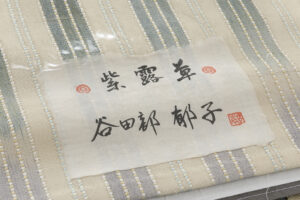 紫露草
谷田部郁子